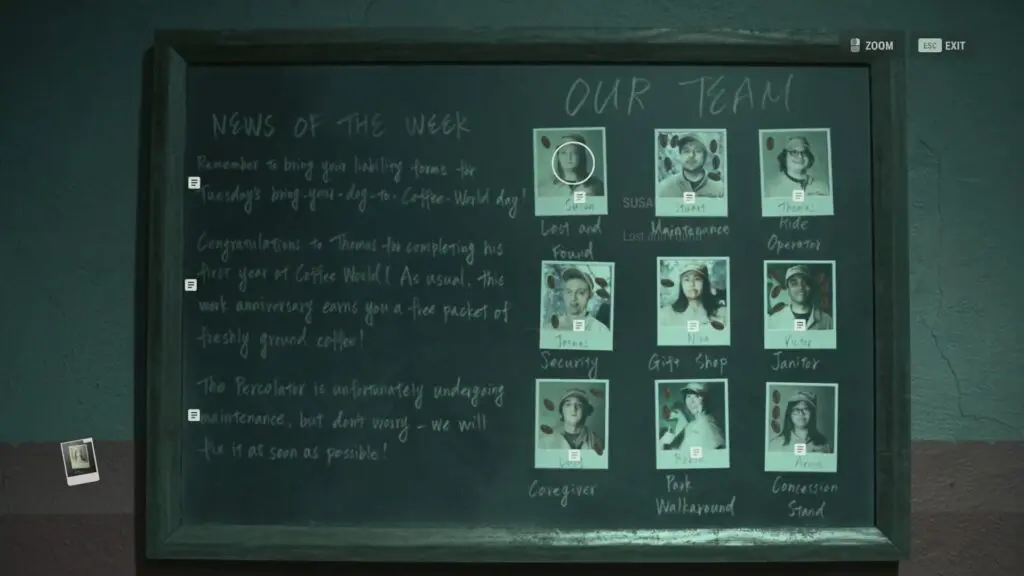 ZOOM
ESC EXIT
OUR TEAM
NEWS OF THE WEEK
Remember to bring your liability forms for
Tuesday's bring-your-dog-to-Coffee-World day!
Congratulations to Thomas for completing his
first year at Coffee World! As usual, this
work anniversary earns you a free packet of
freshly ground coffee!
The Percolator is unfortunately undergoing
maintenance, but don't worry - we will
fix it as soon as possible!
Susan
Lost and
Found
SUSA
Lost and Found
Maintenance
Thomas
Ride
Operator
Security
Nina
Gift Shop
Victor
Janitor
Caregiver
Park
Walkaround
Anna
Concession
Stand